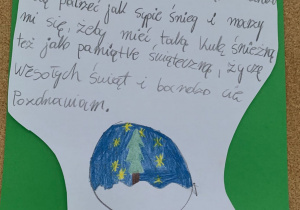 patrzeć jak sypie śnieg i marzy
mi się, żeby mieć taką kulę śnieżną
też jako pamiątkę świąteczną, życzę
Wesołych świąt i bardzo cię
Pozdrawiam.